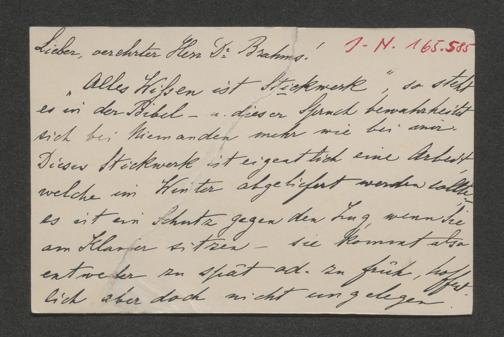 Lieber, verehrter Herr Dr. Brahms! I.N. 165.585
„Alles Wissen ist Stückwerk", so steht
es in der Bibel – u. dieser Spruch bewahrheitet
sich bei Niemanden mehr wie bei mir.
Dieses Stückwerk ist eigentlich eine Arbeit,
welche im Winter abgeliefert werden sollte,
es ist ein Schutz gegen den Zug, wenn Sie
am Klavier sitzen – sie kommt also
entweder zu spät od. zu früh, hoffent-
lich aber doch nicht ungelegen.